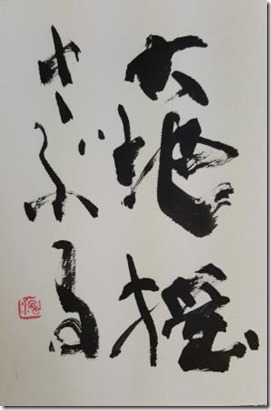 大地揺
さぶる